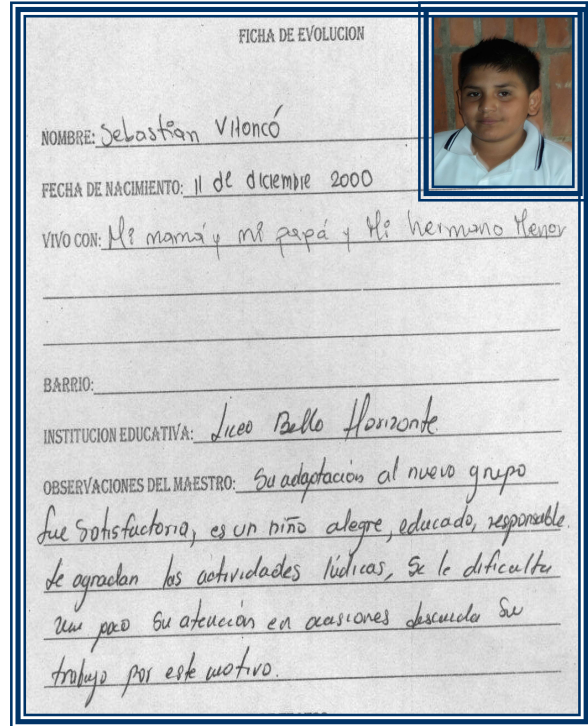 FICHA DE EVOLUCION
NOMBRE: Sebastian Vitoncó
FECHA DE NACIMIENTO: 11 de diciembre 2000
VIVO CON: Mi mamá y mi papá y Mi hermano Menor
BARRIO:
INSTITUCION EDUCATIVA: Liceo Bello Horizonte.
OBSERVACIONES DEL MAESTRO: Su adaptación al nuevo grupo
fue satisfactoria, es un niño alegre, educado, responsable.
Le agradan las actividades lúdicas, Se le dificulta
un poco su atención en ocasiones descuida su
trabajo por este motivo.